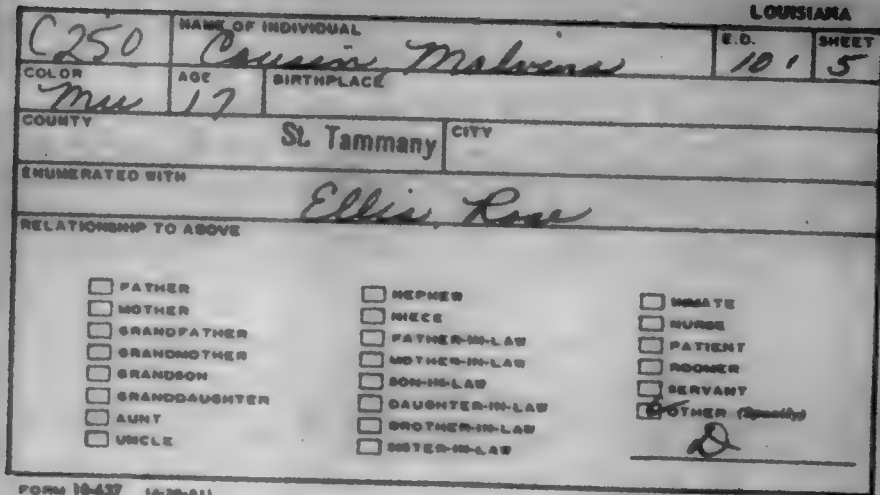 LOUISIANA
C250 NAME OF INDIVIDUAL Cousin Malvina E.D. 101 SHEET 5
COLOR Mu AGE 17 BIRTHPLACE
COUNTY St. Tammany CITY
ENUMERATED WITH Ellis, Rose
RELATIONSHIP TO ABOVE
FATHER
MOTHER
GRANDFATHER
GRANDMOTHER
GRANDSON
GRANDDAUGHTER
AUNT
UNCLE
NEPHEW
NIECE
FATHER-IN-LAW
MOTHER-IN-LAW
SON-IN-LAW
DAUGHTER-IN-LAW
BROTHER-IN-LAW
SISTER-IN-LAW
INMATE
NURSE
PATIENT
ROOMER
SERVANT
OTHER (Specify)
D
FORM 10-637